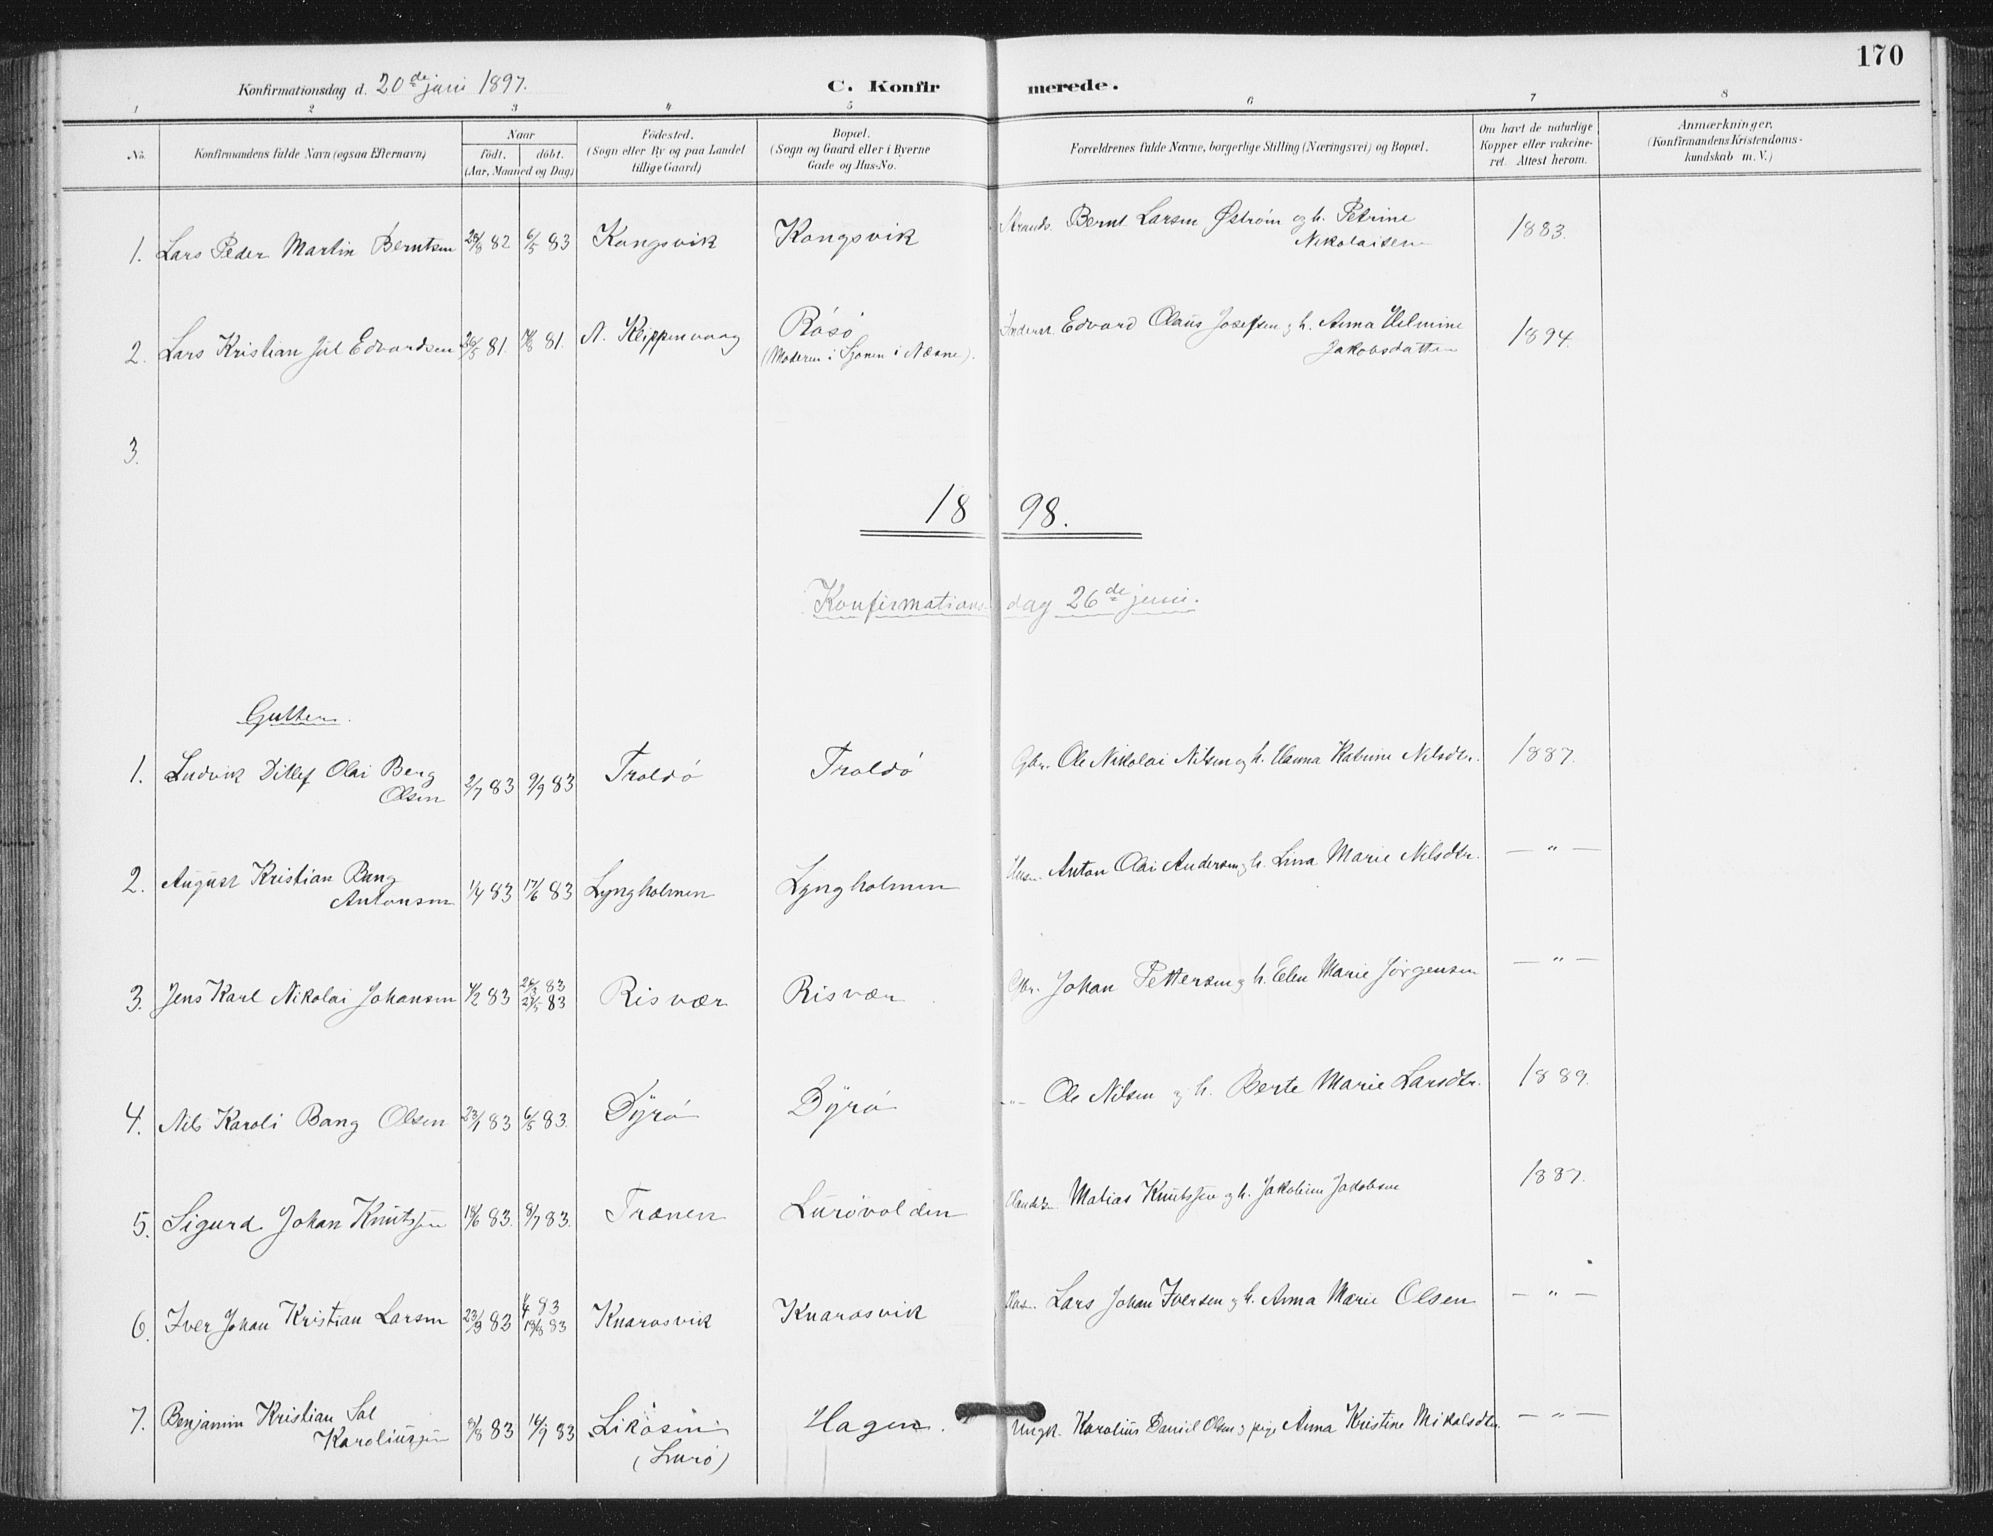 170
Konfirmationsdag d. 20de juni 1897.
C. Konfirmerede.
1 2 3 4 5 6 7 8
No.
Konfirmandens fulde Navn (ogsaa Efternavn)
Naar
födt. döbt.
(Aar, Maaned og Dag)
Födested.
(Sogn eller By og paa Landet
tillige Gaard)
Bopæl.
(Sogn og Gaard eller i Byerne
Gade og Hus-No.
Forældrenes fulde Navne, borgerlige Stilling (Næringsvei) og Bopæl.
Om havt de naturlige
Kopper eller vakcine-
ret. Attest herom.
Anmærkninger.
(Konfirmandens Kristendoms-
kundskab m. V.)
1. Lars Peder Martin Berntsen 82 6/5 83 Kongsvik Kongsvik Strands. Bernt Larsen Øström og h. Petrine
Nikolaisen 1883.
2. Lars Kristian Jul Edvardsen 26/5 81. 81. N. Klippenvaag Rösö
(Moderen i Sjonen i Næsne).
Edvard Olaus Josefsen og h. Anna Helmine
Jakobsdatter 1894.
3.
1898.
Konfirmationsdag 26de juni.
Gutter.
1. Ludvik Ditlef Olai Berg
Olsen 2/7 83 9/9 83 Troldö Troldö Gbr. Ole Nikolai Nilsen og h. Hanna Katrine Nilsdtr. 1887.
2. August Kristian Bang
Antonsen 1/4 83 17/6 83 Lyngholmen Lyngholmen Husm. Anton Olai Andersen og h. Lina Marie Nilsdtr. — " —
3. Jens Karl Nikolai Johansen 1/2 83 26/3 83
27/5 83 Risvær Risvær Gbr. Johan Pettersen og h. Elen Marie Jörgensen — " —
4. Nils Karoli Bang Olsen 23/1 83 6/5 83. Dyrö Dyrö —"— Ole Nilsen og h. Berte Marie Larsdtr. 1889.
5. Sigurd Johan Knutssen 18/6 83. 8/7 83. Trænen Lurövolden Matias Knutssen og h. Jakobine Jakobsen 1887.
6. Iver Johan Kristian Larsen 83 1/4 83
19/8 83 Knarosvik Knarosvik Hus. Lars Johan Iversen og h. Anna Marie Olsen — " —
7. Benjamin Kristian Sal
Karoliussen 5/8 83 16/9 83 Likösin
(Lurö)
Hagen. Ungk. Karolius Daniel Olsen og pige Anna Kristine Mikalsdtr. — " —